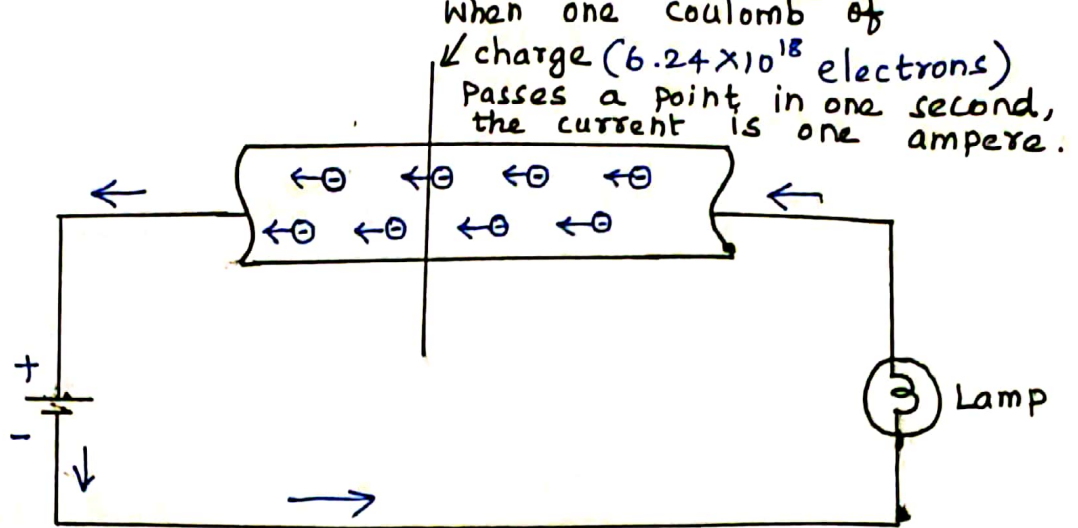 When one Coulomb of
charge (6.24×10¹⁸ electrons)
Passes a point in one second,
the current is one ampere.
+
-
Lamp